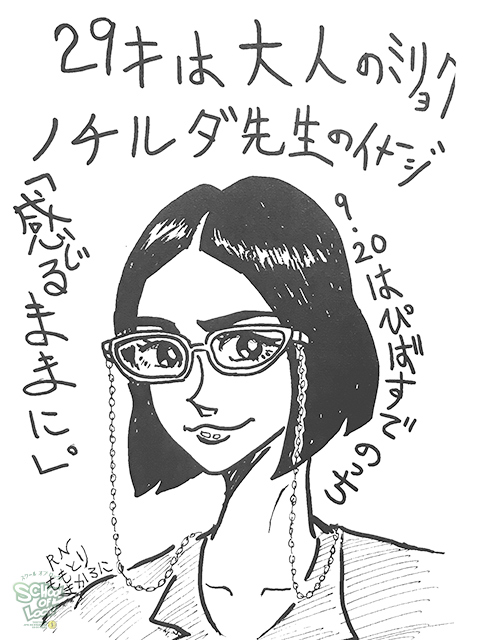 29才は大人のミリョク
ノチルダ先生のイメージ
「感じるままに」。
9.20はぴばすでい
RN
ももとり
まかろに